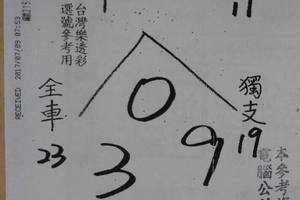 RECEIVED 2017/07/09 07:53
台灣樂透彩
選號參考用
全車
23
0
3
9
獨支
19
本參考
電腦公